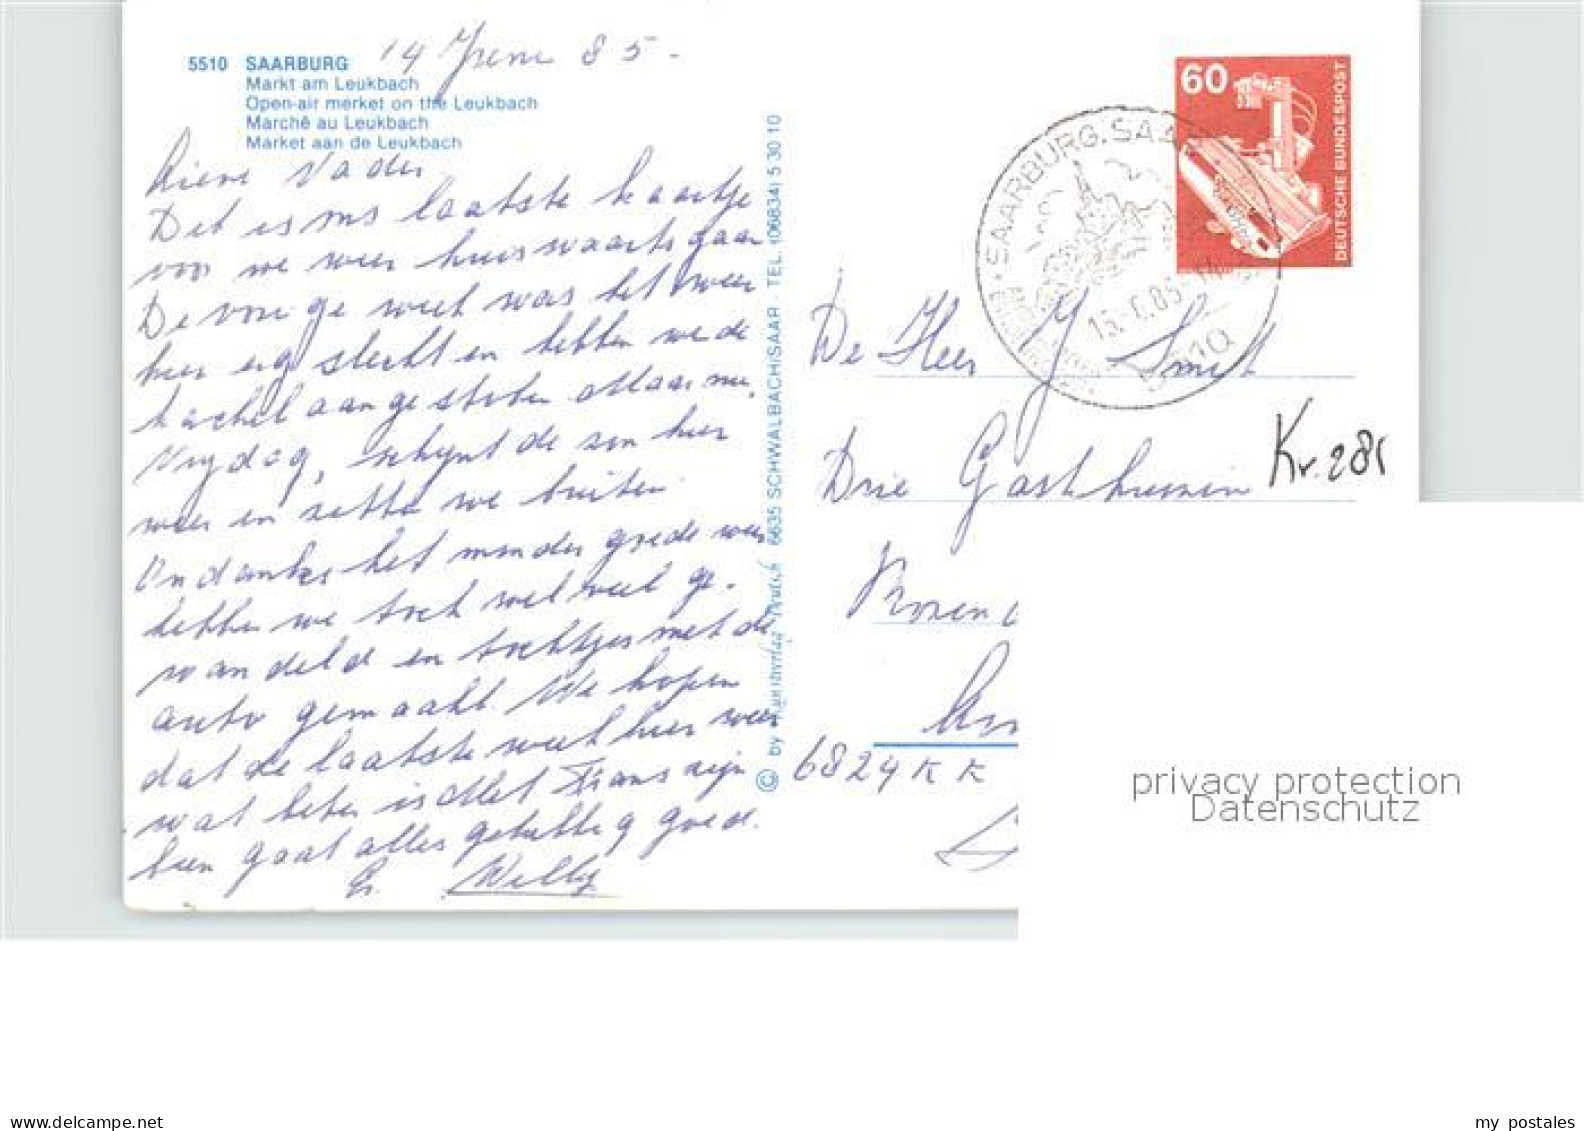 14 Juni 85.
5510 SAARBURG
Markt am Leukbach
Open-air merket on the Leukbach
Marchê au Leukbach
Market aan de Leukbach
Lieve Vader
Dit is ons laatste kaartje
voor we weer huiswaarts gaan
De vorige week was het weer
hier erg slecht en hebben we de
kachel aangestoken Maar nu,
Vrydag, schynt de zon hier
weer en zitten we buiten.
Ondanks het minder goede weer
hebben we toch wel veel ge-
wandeld en tochtjes met de
auto gemaakt. We hopen
dat de laatste week hier weer
wat beter is Met Frans zijn
been gaat alles gelukkig goed.
Gr. Willy
© by Kunstverlag 6635 SCHWALBACH/SAAR · TEL. (06834) 5 30 10
60
DEUTSCHE BUNDESPOST
SAARBURG, SAAR
15.-6.85-14
5510
De Heer J Smit
Drie Gasthuizen Kr. 281
Rosen
6824 KK
privacy protection
Datenschutz
my postales